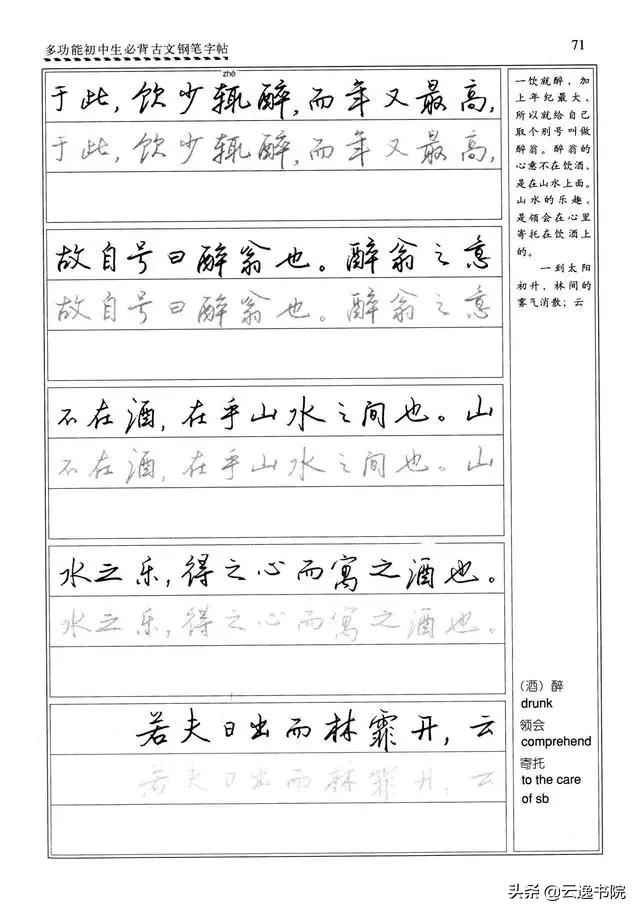 多功能初中生必背古文钢笔字帖
71
zhé
于此，饮少辄醉，而年又最高，
于此，饮少辄醉，而年又最高，
故自号曰醉翁也。醉翁之意
故自号曰醉翁也。醉翁之意
不在酒，在乎山水之间也。山
不在酒，在乎山水之间也。山
水之乐，得之心而寓之酒也。
水之乐，得之心而寓之酒也。
若夫日出而林霏开，云
若夫日出而林霏开，云
一饮就醉，加
上年纪最大，
所以就给自己
取个别号叫做
醉翁。醉翁的
心意不在饮酒，
是在山水上面。
山水的乐趣，
是领会在心里
寄托在饮酒上
的。
一到太阳
初升，林间的
雾气消散；云
（酒）醉
drunk
领会
comprehend
寄托
to the care
of sb
头条@云逸书院